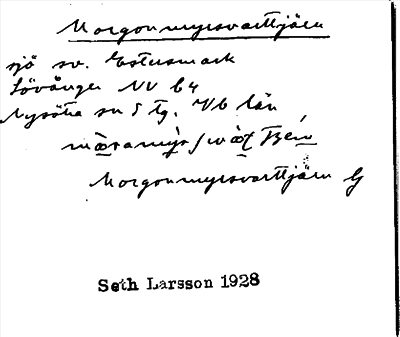 Morgonmyrsvarttjärn
sjö sv. Estersmark
Lövånger NV 64
Nysätra sn S tg. Vb län
Morgonmyrsvarttjärn G
Seth Larsson 1928